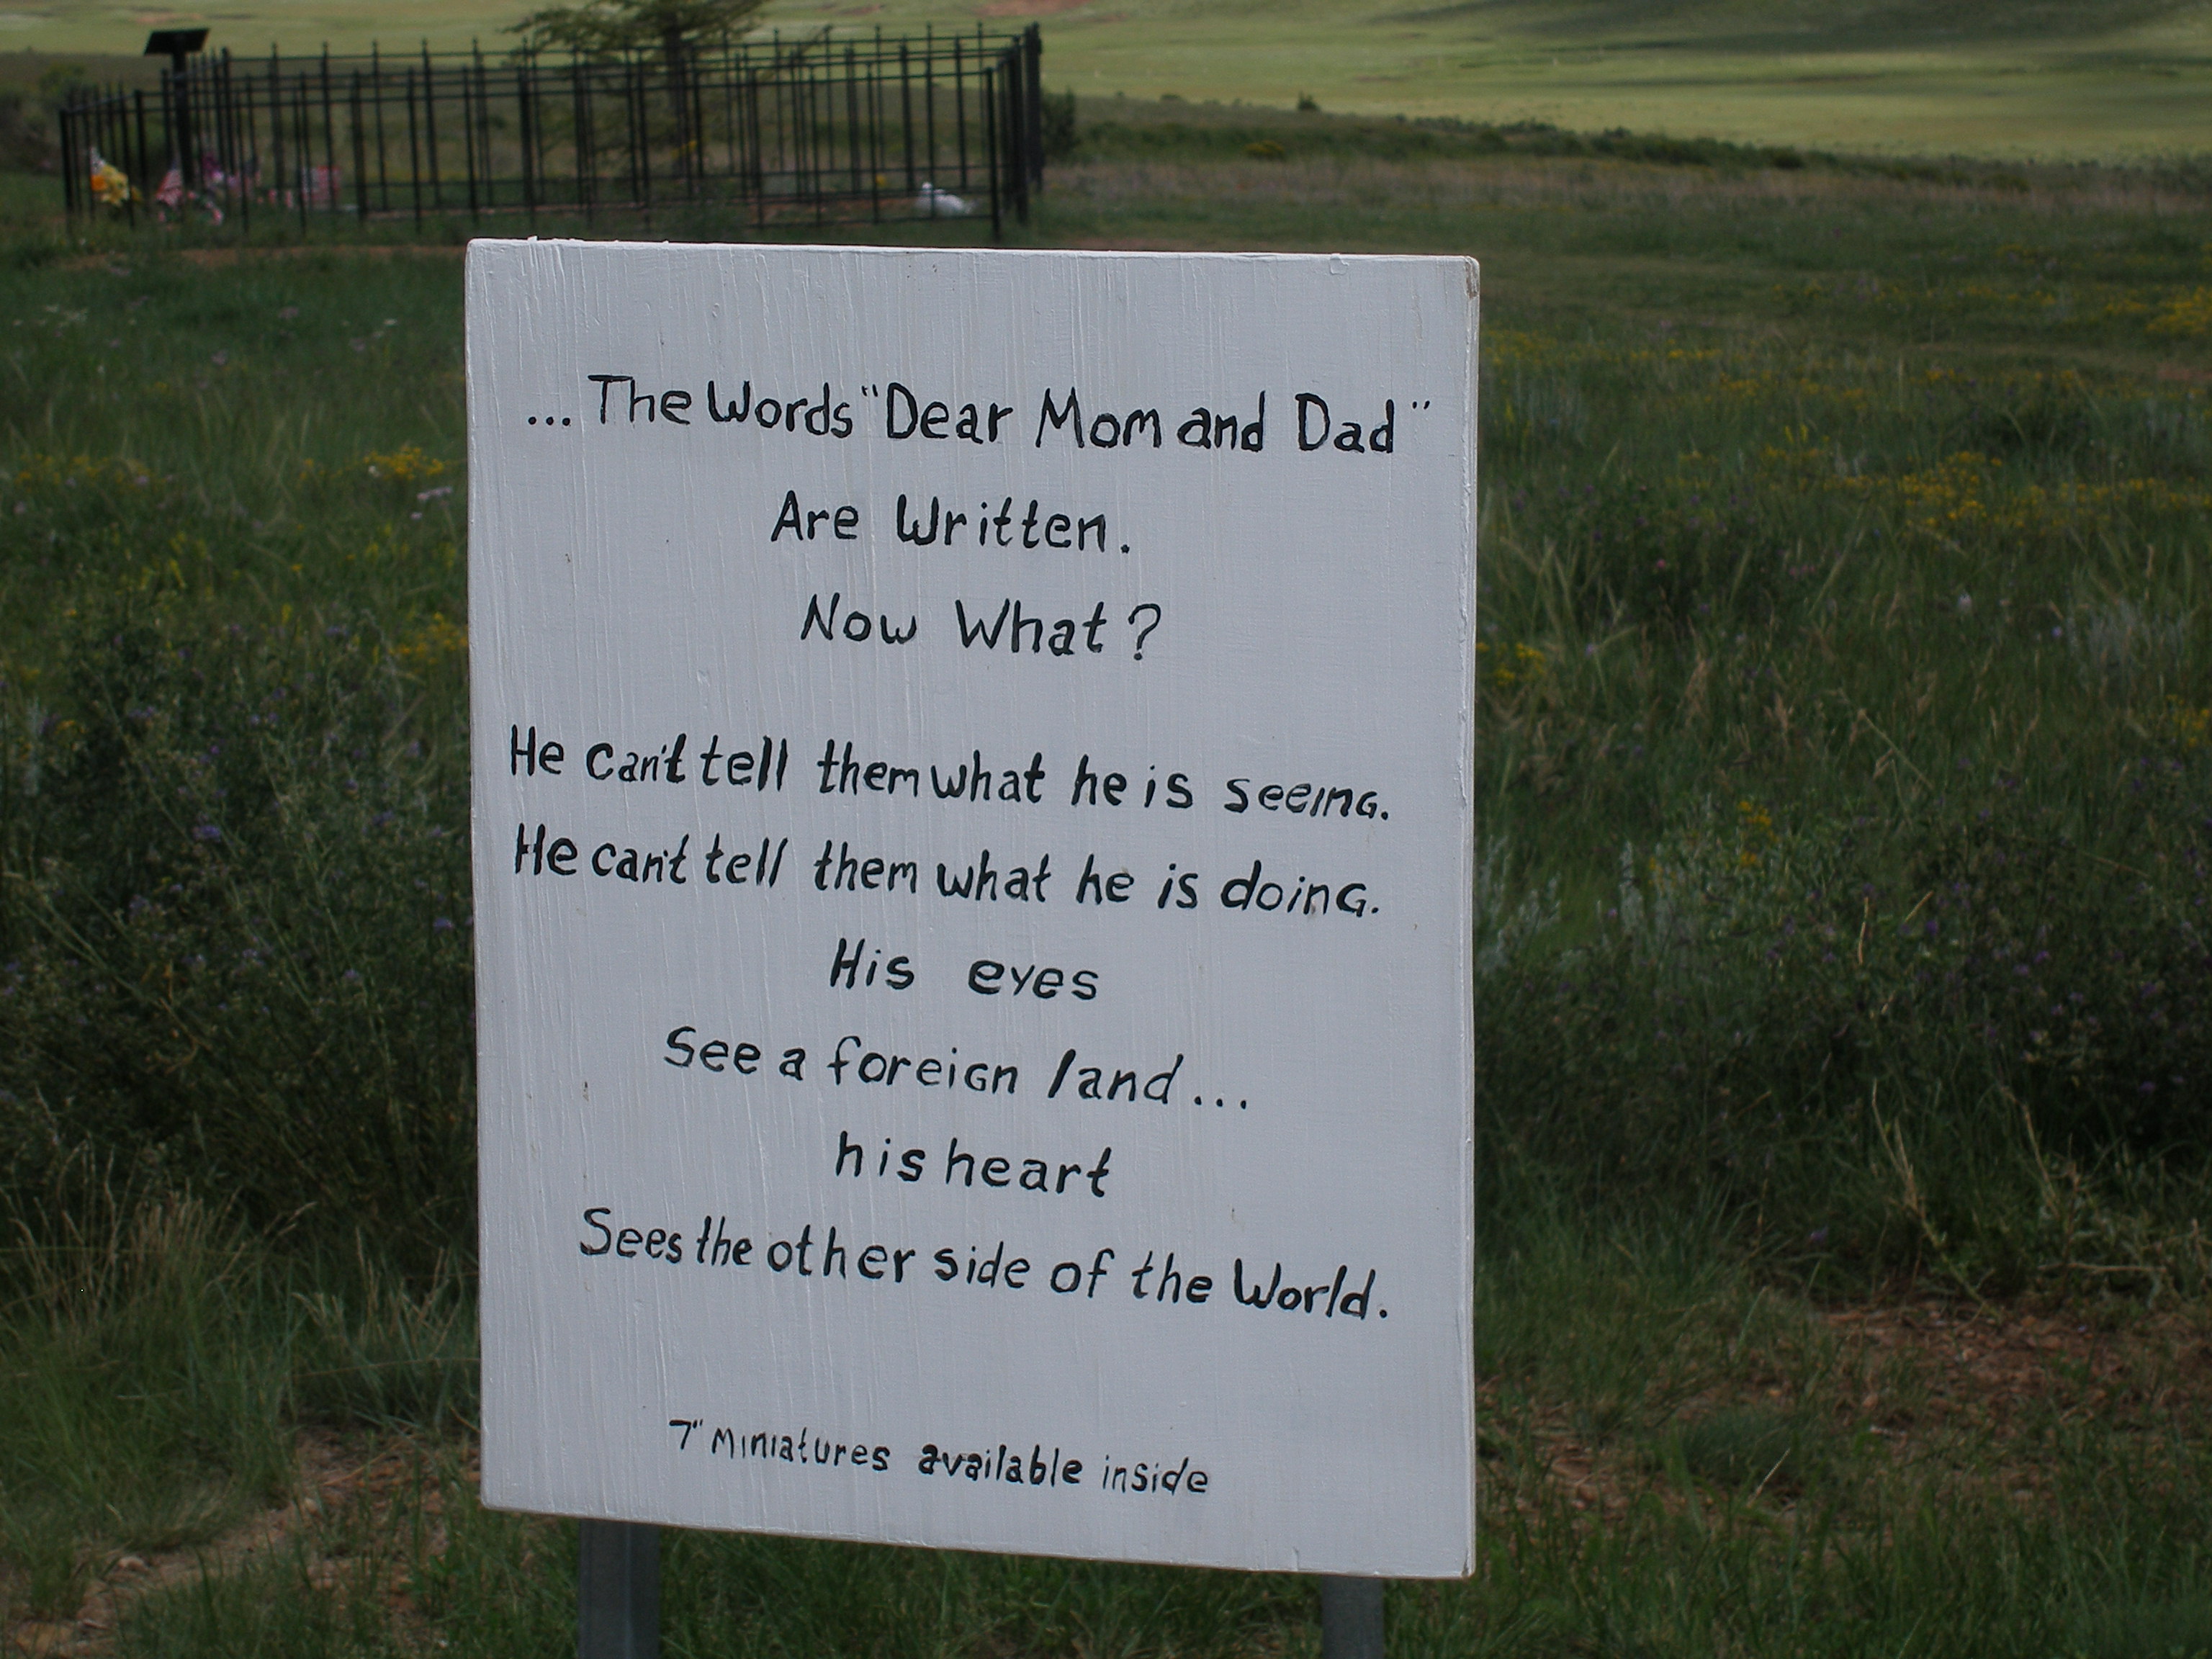 ... The Words "Dear Mom and Dad"
Are Written.
Now What?
He can't tell them what he is seeing.
He can't tell them what he is doing.
His eyes
See a foreign land...
his heart
Sees the other side of the World.
7" Miniatures available inside